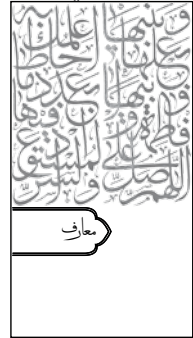 اللهم صل على
فاطمة و
ابیها و
بعلها و
بنیها
و السر
المستودع
فیها
بعدد ما
احاط به
علمک
معارف